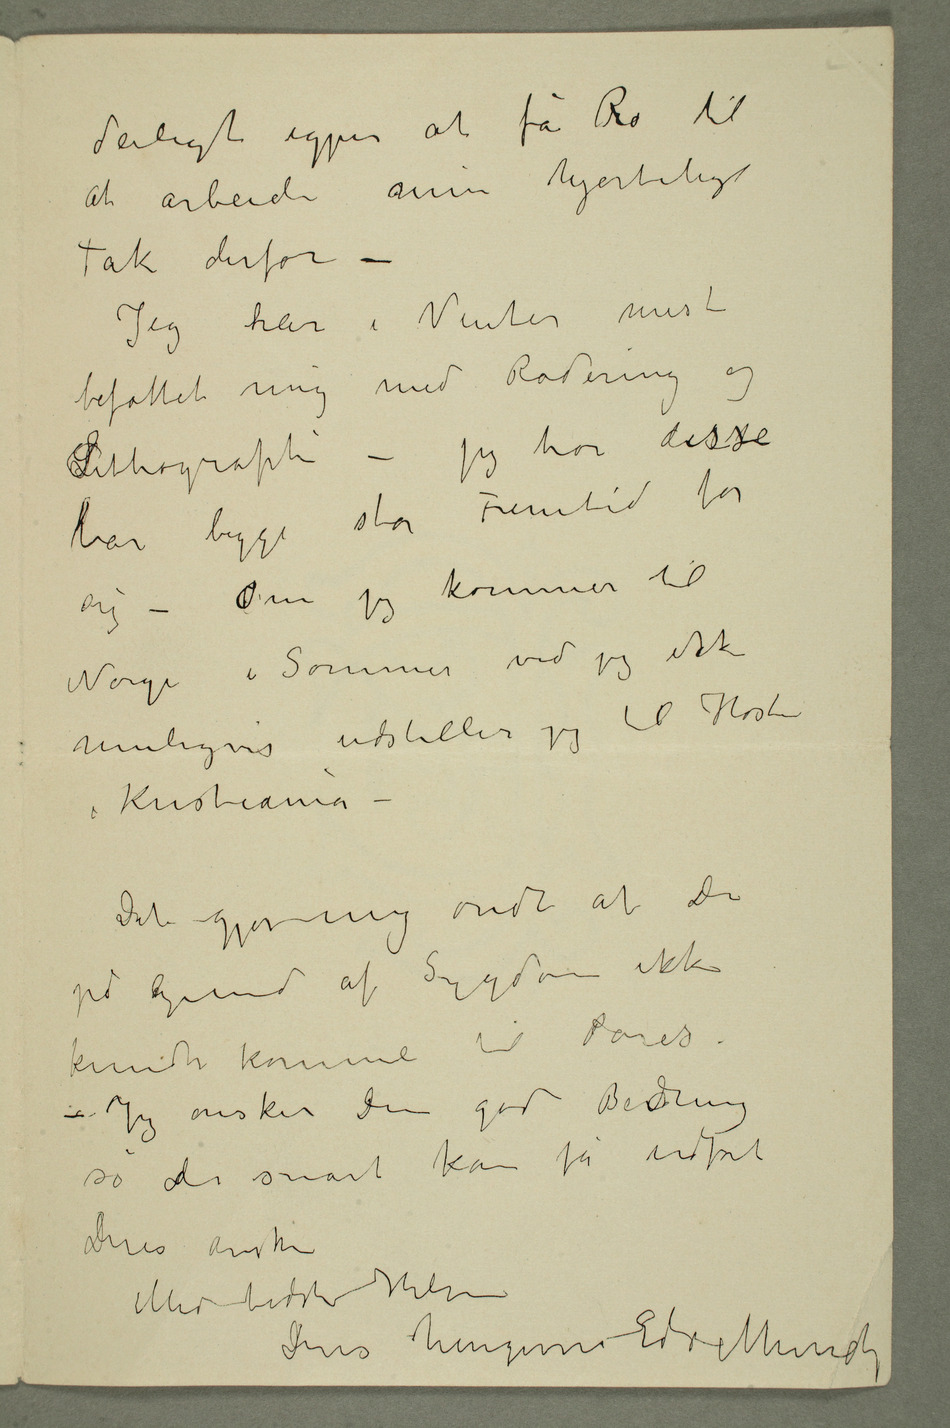 deiligt igjen at få Ro til
at arbeide min hjerteligst
Tak derfor –
Jeg har i Vinter mest
befattet mig med Radering og
Lithografi – jeg tror disse
har begge stor Fremtid for
sig – Om jeg kommer til
Norge i Sommer ved jeg ikke
muligvis udstiller jeg til Høsten
i Kristiania –
Det gjør mig ondt at De
på Grund af Sygdom ikke
kunde komme til Paris.
– Jeg ønsker Dem god Bedring
så De snart kan få udført
Deres ønske
Med bedste Hilsen
Deres hengivne Edv Munch